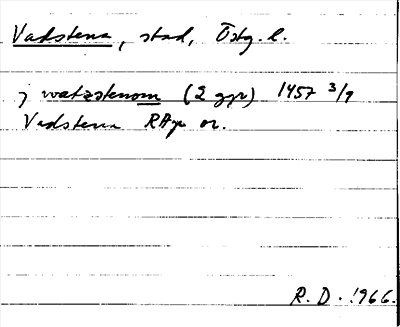 Vadstena, stad, Östg. l.
j watzstenom (2 ggr) 1457 3/9
Vadstena RAp or.
R. D. 1966.